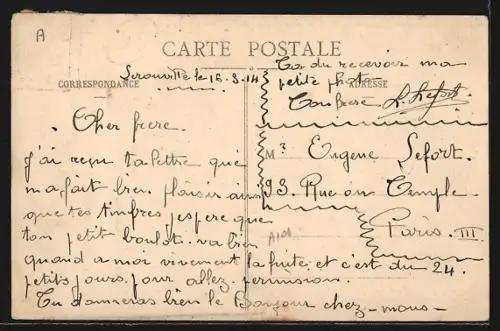 A
CARTE POSTALE
CORRESPONDANCE
ADRESSE
Lerouville le 16-3-14
Tu du recevoir ma
petite phot-
Ton frere L. Lefort
Cher frere.
J'ai reçu ta lettre qui
m'a fait bien plaisir ainsi
que tes timbres j'espere que
ton petit boulot va bien
quand a moi vivement la fuite et c'est du 24.
petits jours pour allez permission.
Tu donneras bien le Bonjour chez-nous-
Mr Eugene Lefort.
93. Rue du Temple
Paris. III
A101